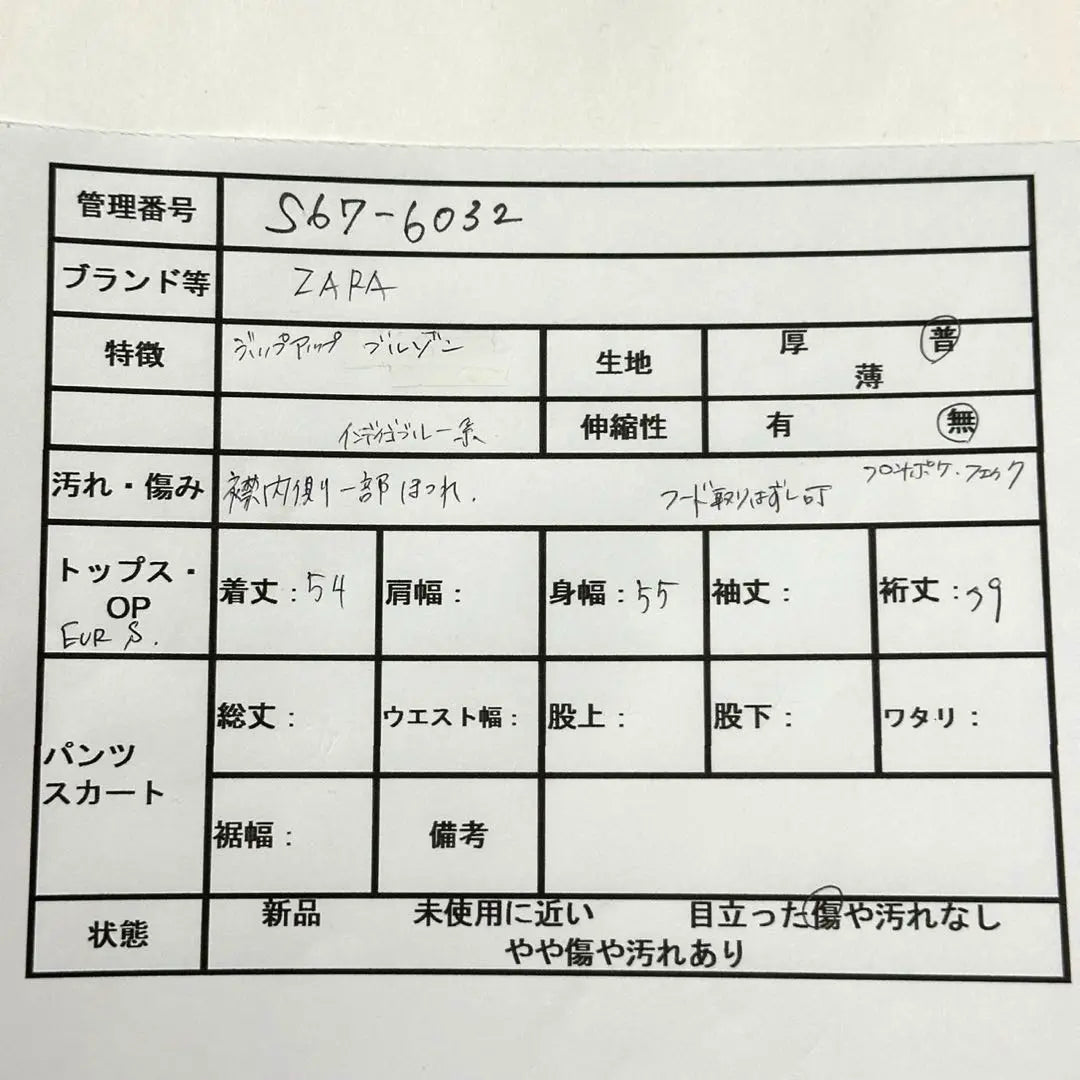 管理番号 S67-6032
ブランド等 ZARA
特徴 ジップアップ ブルゾン 生地 厚 普
薄
インディゴブルー系 伸縮性 有 無
汚れ・傷み 襟内側り一部ほつれ. フード取りはずし可 フロントポケ.
トップス・
OP
EUR S.
着丈:54 肩幅: 身幅:55 袖丈: 裄丈:79
パンツ
スカート
総丈: ウエスト幅: 股上: 股下: ワタリ:
裾幅: 備考
状態 新品 未使用に近い 目立った傷や汚れなし
やや傷や汚れあり